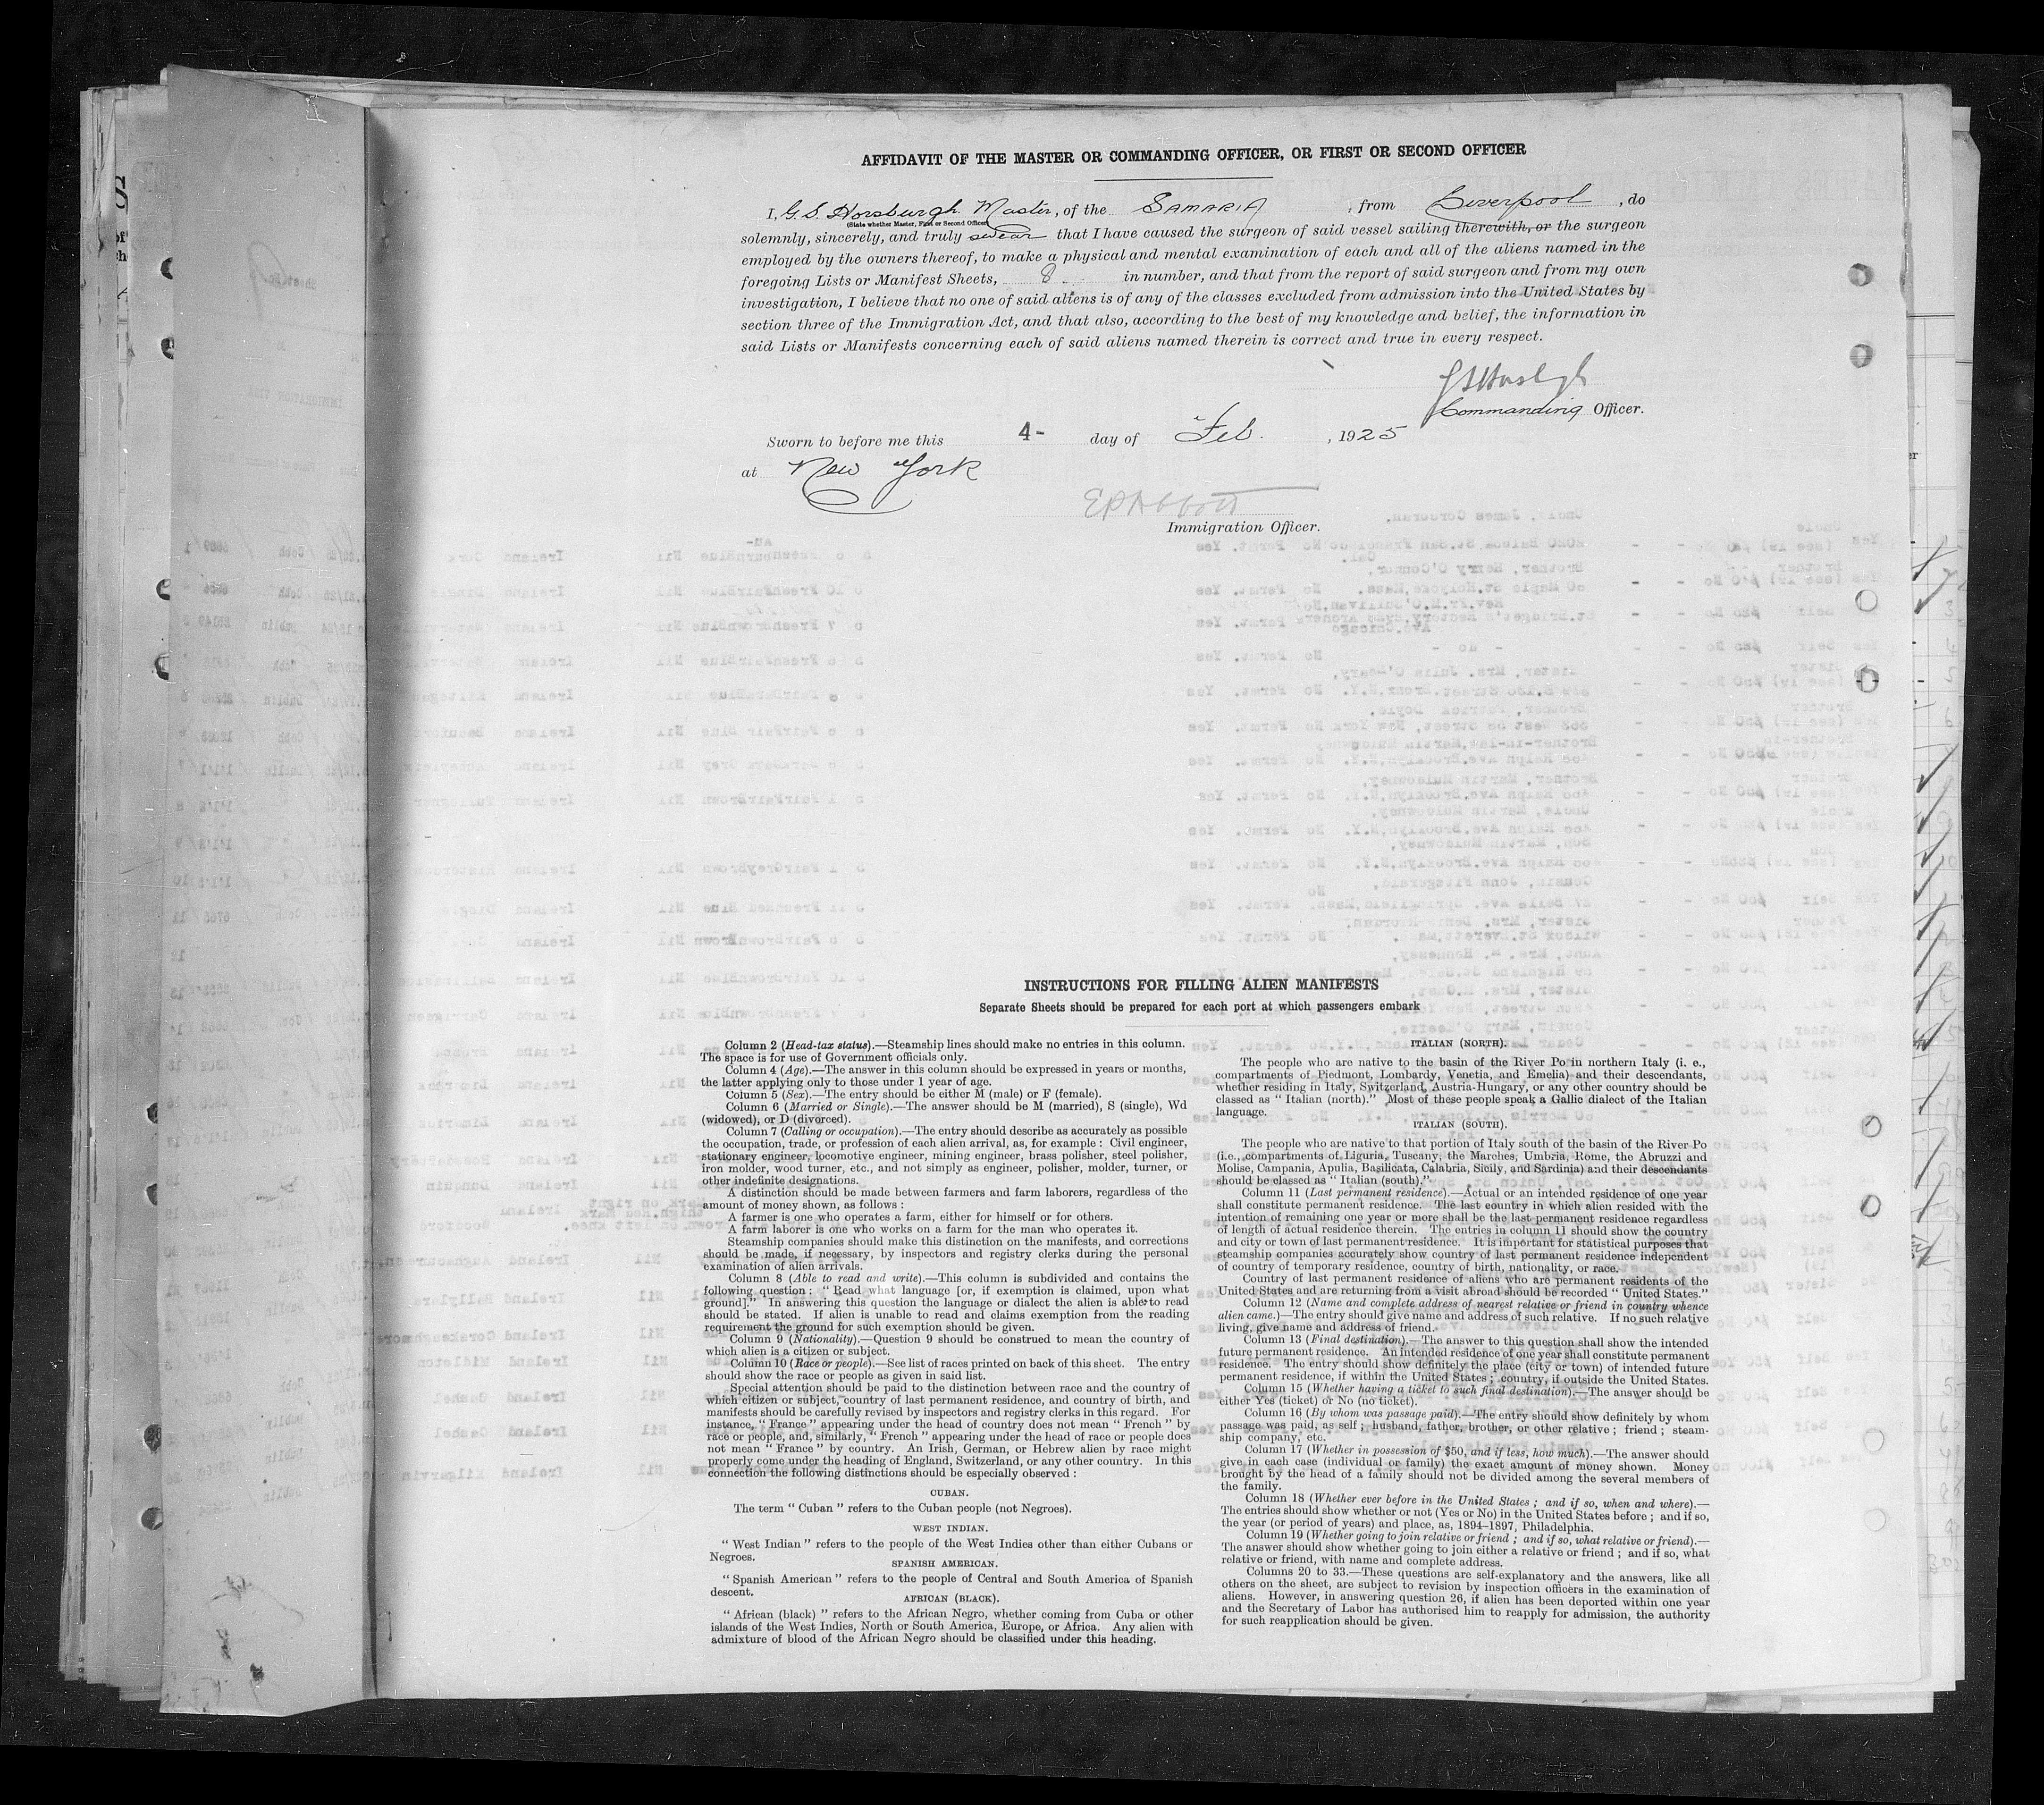 AFFIDAVIT OF THE MASTER OR COMMANDING OFFICER, OR FIRST OR SECOND OFFICER
I, G. S. Horsburgh. Master, of the SAMARIA, from Liverpool, do
(State whether Master, First or Second Officer)
solemnly, sincerely, and truly swear that I have caused the surgeon of said vessel sailing therewith, or the surgeon
employed by the owners thereof, to make a physical and mental examination of each and all of the aliens named in the
foregoing Lists or Manifest Sheets, 8 in number, and that from the report of said surgeon and from my own
investigation, I believe that no one of said aliens is of any of the classes excluded from admission into the United States by
section three of the Immigration Act, and that also, according to the best of my knowledge and belief, the information in
said Lists or Manifests concerning each of said aliens named therein is correct and true in every respect.
Commanding Officer.
Sworn to before me this 4- day of Feb. , 1925
at New York
E P Abbott
Immigration Officer.
INSTRUCTIONS FOR FILLING ALIEN MANIFESTS
Separate Sheets should be prepared for each port at which passengers embark
Column 2 (Head-tax status).—Steamship lines should make no entries in this column.
The space is for use of Government officials only.
Column 4 (Age).—The answer in this column should be expressed in years or months,
the latter applying only to those under 1 year of age.
Column 5 (Sex).—The entry should be either M (male) or F (female).
Column 6 (Married or Single).—The answer should be M (married), S (single), Wd
(widowed), or D (divorced).
Column 7 (Calling or occupation).—The entry should describe as accurately as possible
the occupation, trade, or profession of each alien arrival, as, for example : Civil engineer,
stationary engineer, locomotive engineer, mining engineer, brass polisher, steel polisher,
iron molder, wood turner, etc., and not simply as engineer, polisher, molder, turner, or
other indefinite designations.
A distinction should be made between farmers and farm laborers, regardless of the
amount of money shown, as follows :
A farmer is one who operates a farm, either for himself or for others.
A farm laborer is one who works on a farm for the man who operates it.
Steamship companies should make this distinction on the manifests, and corrections
should be made, if necessary, by inspectors and registry clerks during the personal
examination of alien arrivals.
Column 8 (Able to read and write).—This column is subdivided and contains the
following question : " Read what language [or, if exemption is claimed, upon what
ground]." In answering this question the language or dialect the alien is able to read
should be stated. If alien is unable to read and claims exemption from the reading
requirement the ground for such exemption should be given.
Column 9 (Nationality).—Question 9 should be construed to mean the country of
which alien is a citizen or subject.
Column 10 (Race or people).—See list of races printed on back of this sheet. The entry
should show the race or people as given in said list.
Special attention should be paid to the distinction between race and the country of
which citizen or subject, country of last permanent residence, and country of birth, and
manifests should be carefully revised by inspectors and registry clerks in this regard. For
instance, " France " appearing under the head of country does not mean " French " by
race or people, and, similarly, " French " appearing under the head of race or people does
not mean " France " by country. An Irish, German, or Hebrew alien by race might
properly come under the heading of England, Switzerland, or any other country. In this
connection the following distinctions should be especially observed :
CUBAN.
The term " Cuban " refers to the Cuban people (not Negroes).
WEST INDIAN.
" West Indian " refers to the people of the West Indies other than either Cubans or
Negroes.
SPANISH AMERICAN.
" Spanish American " refers to the people of Central and South America of Spanish
descent.
AFRICAN (BLACK).
" African (black) " refers to the African Negro, whether coming from Cuba or other
islands of the West Indies, North or South America, Europe, or Africa. Any alien with
admixture of blood of the African Negro should be classified under this heading.
ITALIAN (NORTH).
The people who are native to the basin of the River Po in northern Italy (i. e.,
compartments of Piedmont, Lombardy, Venetia, and Emelia) and their descendants,
whether residing in Italy, Switzerland, Austria-Hungary, or any other country should be
classed as " Italian (north)." Most of these people speak a Gallic dialect of the Italian
language.
ITALIAN (SOUTH).
The people who are native to that portion of Italy south of the basin of the River Po
(i.e., compartments of Liguria, Tuscany, the Marches, Umbria, Rome, the Abruzzi and
Molise, Campania, Apulia, Basilicata, Calabria, Sicily, and Sardinia) and their descendants
should be classed as " Italian (south)."
Column 11 (Last permanent residence).—Actual or an intended residence of one year
shall constitute permanent residence. The last country in which alien resided with the
intention of remaining one year or more shall be the last permanent residence regardless
of length of actual residence therein. The entries in column 11 should show the country
and city or town of last permanent residence. It is important for statistical purposes that
steamship companies accurately show country of last permanent residence independent
of country of temporary residence, country of birth, nationality, or race.
Country of last permanent residence of aliens who are permanent residents of the
United States and are returning from a visit abroad should be recorded " United States."
Column 12 (Name and complete address of nearest relative or friend in country whence
alien came.)—The entry should give name and address of such relative. If no such relative
living, give name and address of friend.
Column 13 (Final destination).—The answer to this question shall show the intended
future permanent residence. An intended residence of one year shall constitute permanent
residence. The entry should show definitely the place (city or town) of intended future
permanent residence, if within the United States ; country, if outside the United States.
Column 15 (Whether having a ticket to such final destination).—The answer should be
either Yes (ticket) or No (no ticket).
Column 16 (By whom was passage paid).—The entry should show definitely by whom
passage was paid, as self ; husband, father, brother, or other relative ; friend ; steam-
ship company, etc.
Column 17 (Whether in possession of $50, and if less, how much).—The answer should
give in each case (individual or family) the exact amount of money shown. Money
brought by the head of a family should not be divided among the several members of
the family.
Column 18 (Whether ever before in the United States ; and if so, when and where).—
The entries should show whether or not (Yes or No) in the United States before ; and if so,
the year (or period of years) and place, as, 1894–1897, Philadelphia.
Column 19 (Whether going to join relative or friend ; and if so, what relative or friend).—
The answer should show whether going to join either a relative or friend ; and if so, what
relative or friend, with name and complete address.
Columns 20 to 33.—These questions are self-explanatory and the answers, like all
others on the sheet, are subject to revision by inspection officers in the examination of
aliens. However, in answering question 26, if alien has been deported within one year
and the Secretary of Labor has authorised him to reapply for admission, the authority
for such reapplication should be given.